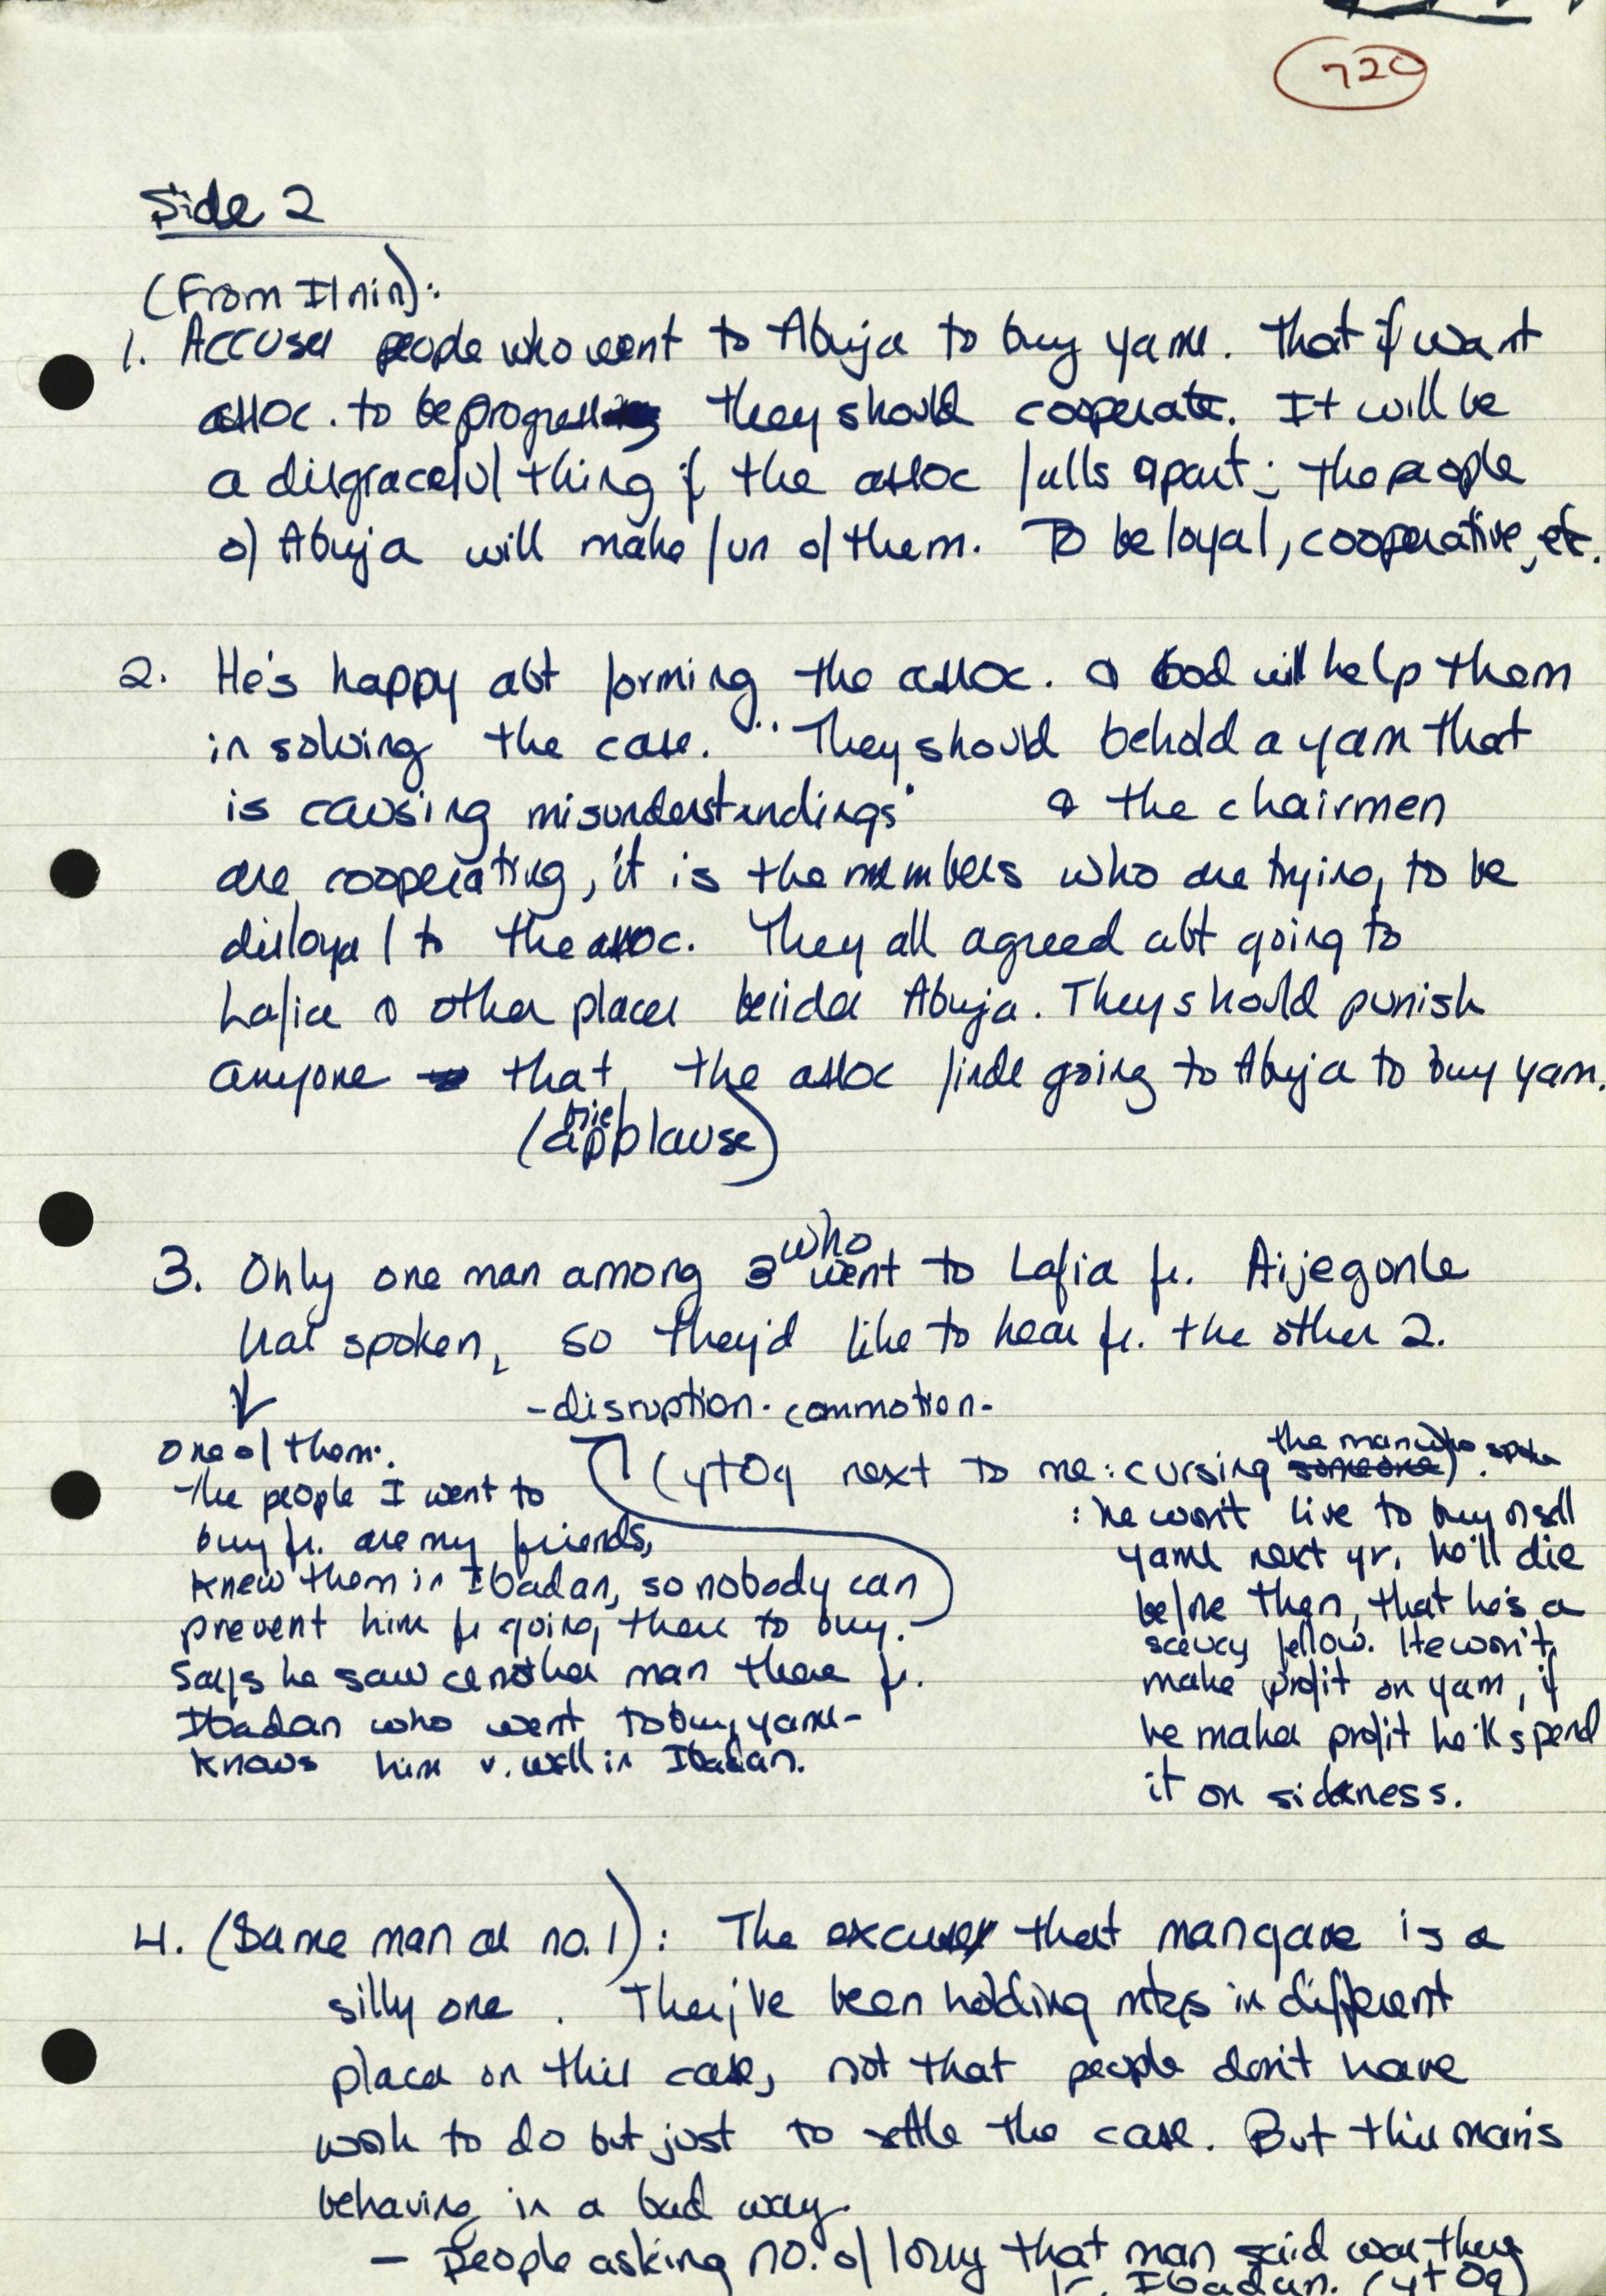 720
Side 2
(From Ilnin):
1. Accuses people who went to Abuja to buy yams. That if want
assoc. to be progressing they should cooperate. It will be
a disgraceful thing if the assoc falls apart; the people
of Abuja will make fun of them. To be loyal, cooperative, etc.
2. He's happy abt forming the assoc. & God will help them
in solving the case. "They should behold a yam that
is causing misunderstandings" & the chairmen
are cooperating, it is the members who are trying to be
disloyal to the assoc. They all agreed abt going to
Lafia & other places besides Abuja. They should punish
anyone that the assoc finds going to Abuja to buy yam.
(brief applause)
3. Only one man among 3 who went to Lafia fr. Aijegonle
has spoken, so they'd like to hear fr. the other 2.
-disruption. commotion-
One of them:
-the people I went to
buy fr. are my friends,
knew them in Ibadan, so nobody can
prevent him fr going there to buy.-
Says he saw another man there fr.
Ibadan who went to buy yams-
knows him v. well in Ibadan.
(ytOg next to me: cursing someone the man who spoke).
: he won't live to buy n sell
yams next yr. he'll die
before then, that he's a
saucy fellow. He won't
make profit on yam, if
he makes profit he'll spend
it on sickness.
4. (Same man as no. 1): The excuse that man gave is a
silly one. They've been holding mtgs in different
places on this case, not that people don't have
work to do but just to settle the case. But this man's
behaving in a bad way.
- People asking no. of lorry that man said was there
fr. Ibadan. (ytOg)